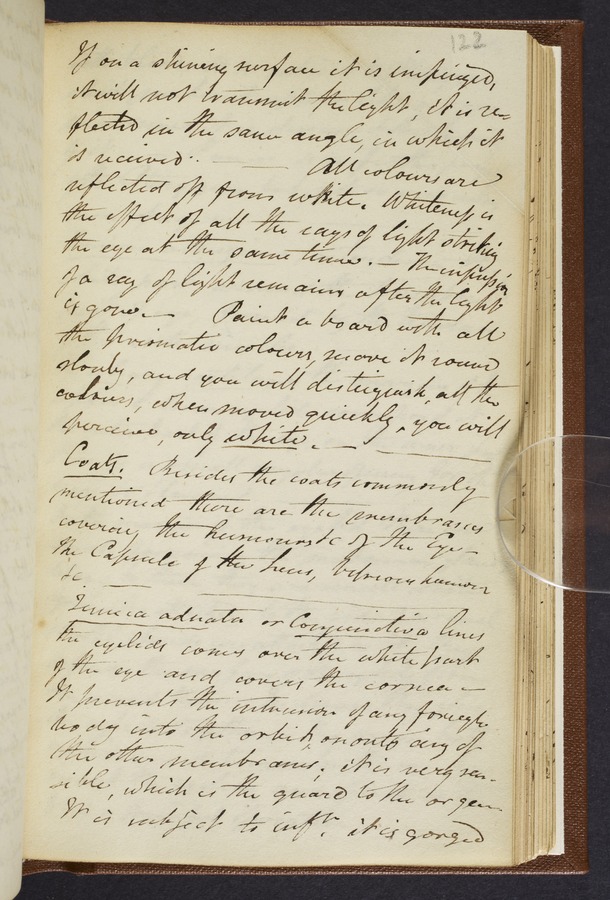 122
If on a shining surface it is impinged,
it will not transmit the light, it is re=
flected in the same angle, in which it
is received. — All colours are
reflected off from white. Whiteness is
the effect of all the rays of light striking
the eye at the same time. — The impression
of a ray of light remains after the light
is gone — Paint a board with all
the prismatic colours, move it round
slowly, and you will distinguish, all the
colours, when moved quickly, you will
perceive, only white. —
Coats. Besides the coats commonly
mentioned there are the membranes
covering the humours &c of the Eye —
The Capsule of the lens, vitreous humour
&c —
Tunica adnata or Conjunctiva lines
the eyelids comes over the white part
of the eye and covers the cornea —
It prevents the intrusion of any foreign
body into the orbit, or onto any of
the other membranes. it is very sen-
sible, which is the guard to the organ
It is subject to infn. it is gorged